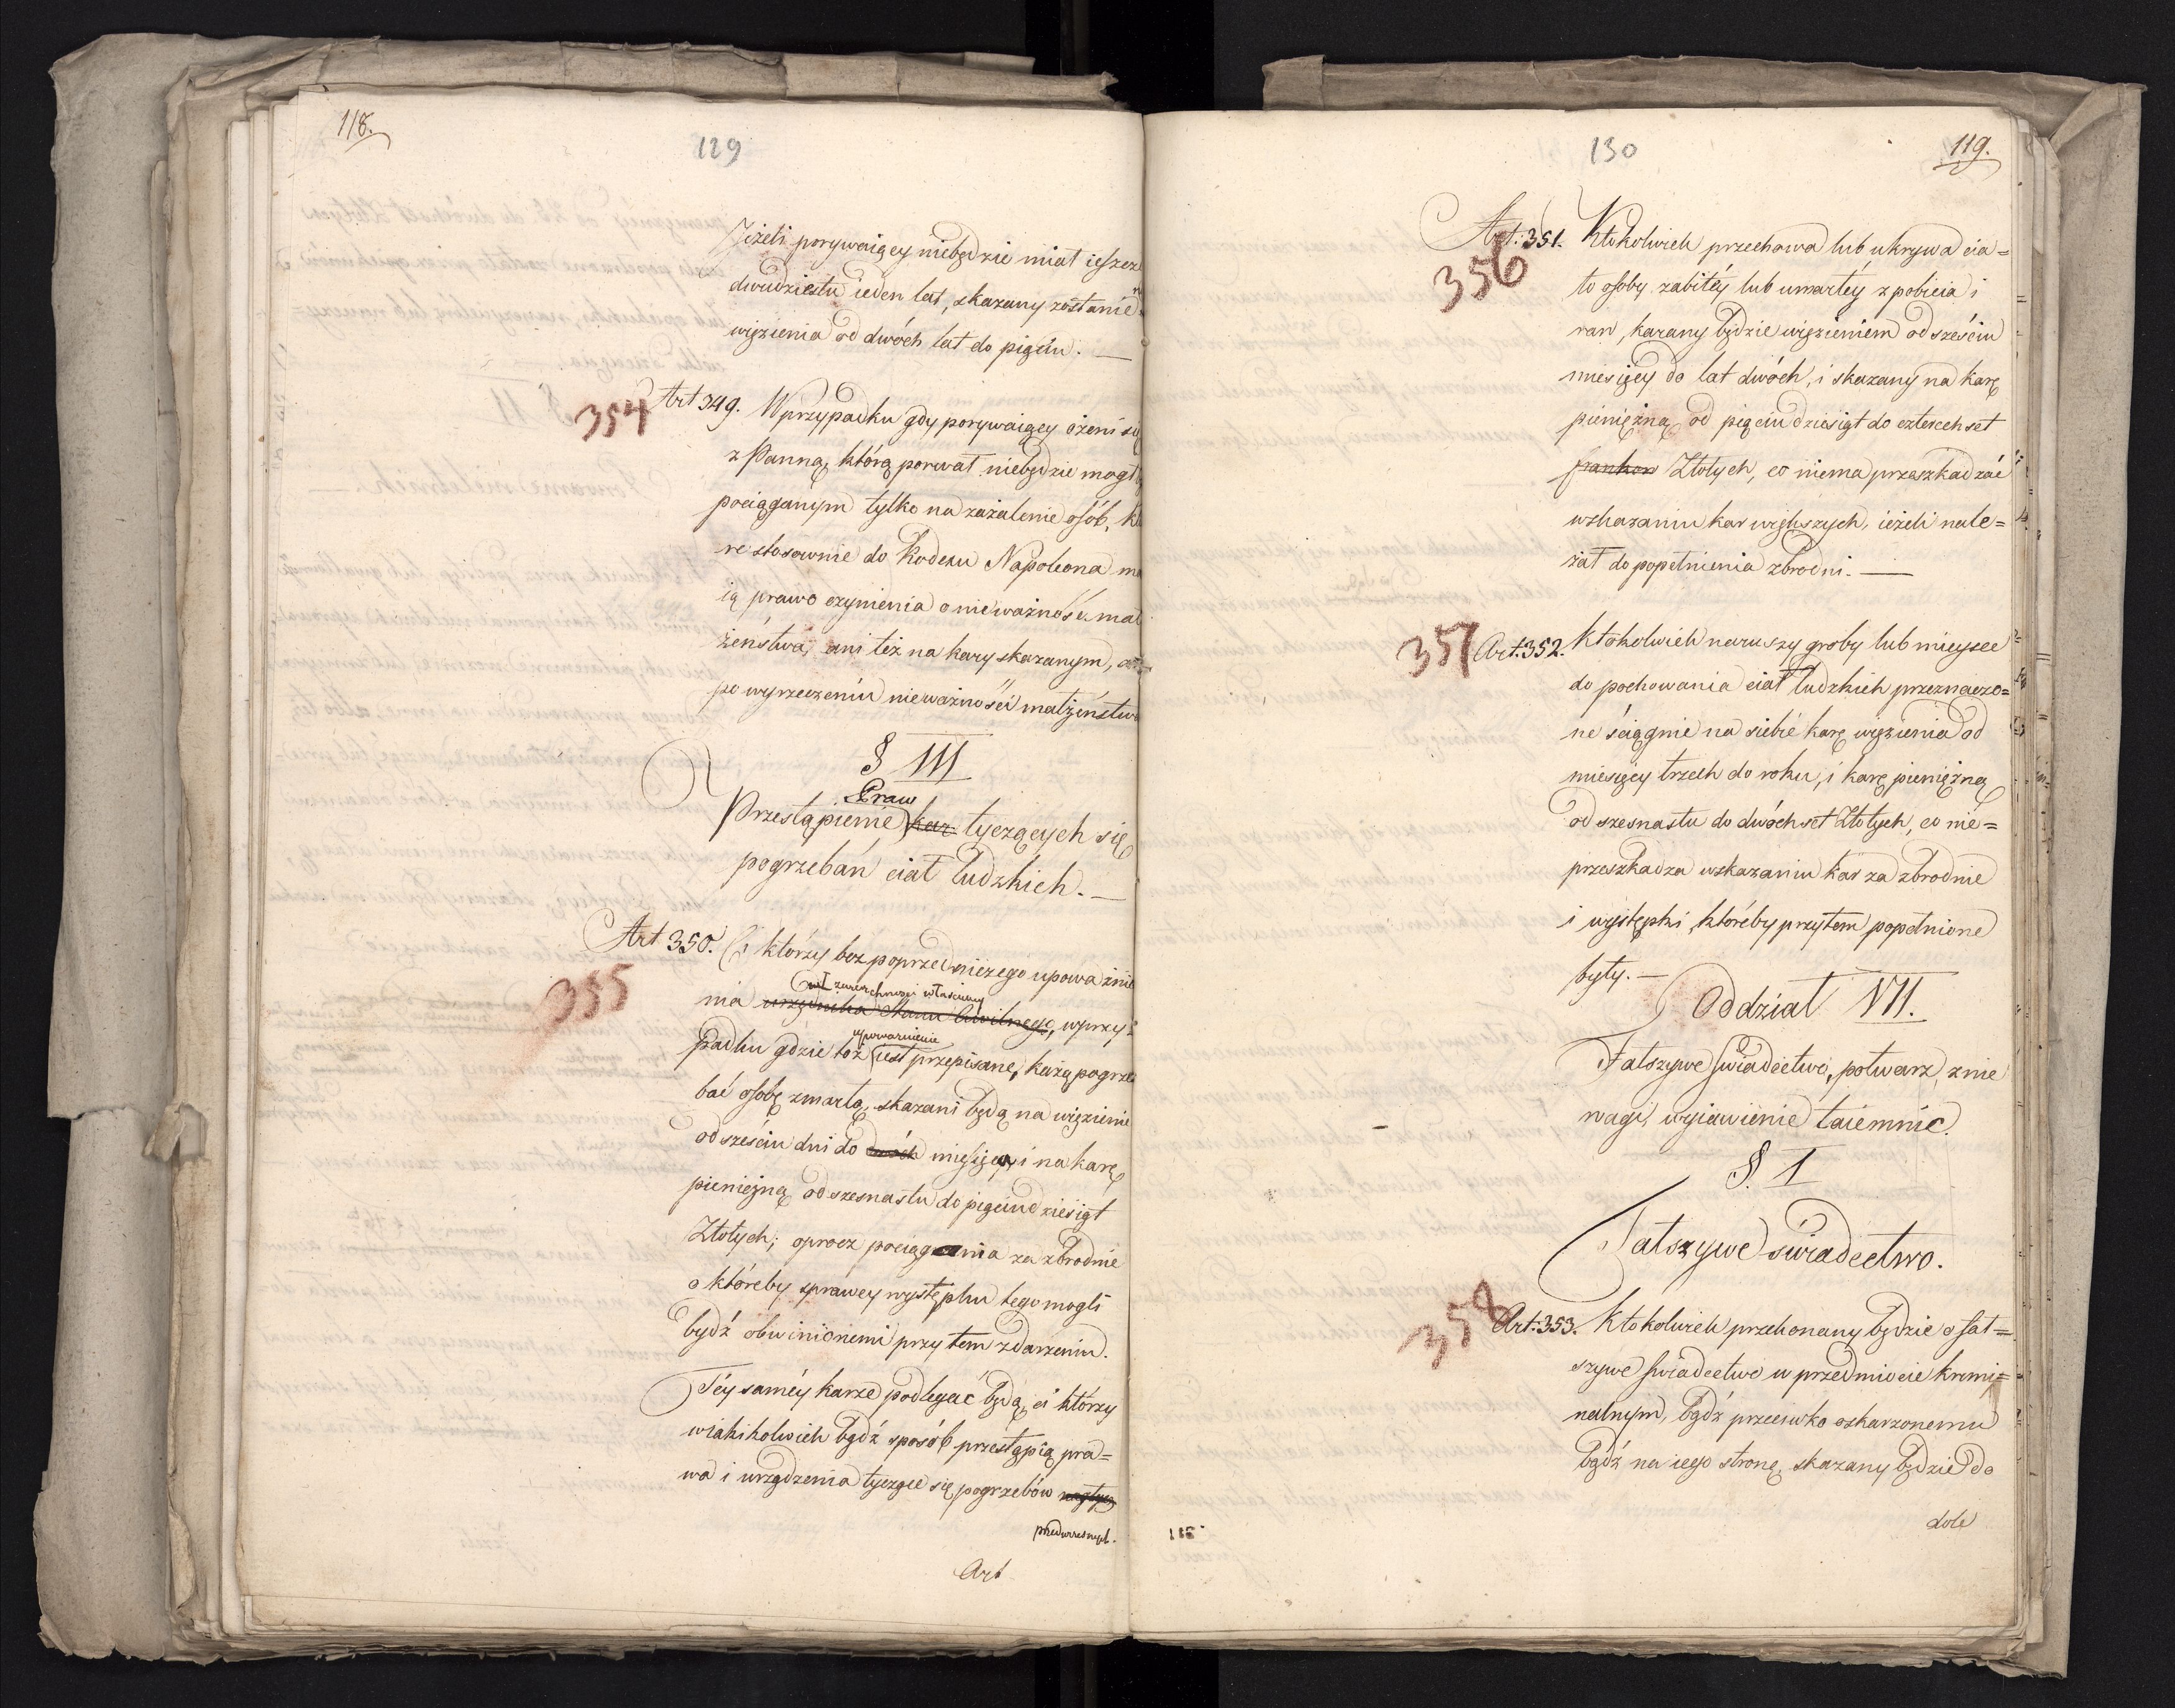 118.
129
Jeżeli porywaiący niebędzie miał ieszcze
dwudziestu ieden lat, skazany zostanie
więzienia od dwóch lat do pięciu. —
354
Art 349. W przypadku gdy porywaiący ożeni się
z Panną, którą porwał niebędzie mógł
pociąganym tylko na zażalenie osób, któ
re stosownie do Kodexu Napoleona ma
ią prawo czynienia o nieważność mał
żeństwa, ani też na kary skazanym,
po wyrzeczeniu nieważności małżeństwa
§ III
Praw
Przestąpienie kar tyczących się
pogrzebań ciał ludzkich. —
Art 350. Ci którzy bez poprzedniczego upoważnie
355
zwierzchności właściwey
nia urzędnika Stanu Cywilnego, w przy=
upoważnienie
padku gdzie toż iest przepisane, każą pogrze
bać osobę zmarłą, skazani będą na więzienie
od sześciu dni do dwóch miesięcy, i na karę
pieniężną od szesnastu do pięciudziesiąt
Złotych; oprocz pociągania za zbrodnie
o któreby sprawcy występku tego mogli
bydź obwinionemi przy tem zdarzeniu.
Téy saméy karze podlegać będą ci którzy
wiakikolwiek bądź sposób przestąpią pra=
wa i urządzenia tyczące się pogrzebów nagłych
przedwczesnych.
Art
130
119.
Art: 351. Ktokolwiek przechowa lub ukrywa cia=
356
ło osoby zabitéy lub umartéy z pobicia i
ran, karany będzie więzieniem od sześciu
miesięcy do lat dwóch, i skazany na karę
pieniężną od pięciudziesiąt do czterechset
franków Złotych, co niema przeszkadzać
wskazaniu kar większych, ieżeli nale=
żał do popełnienia zbrodni. —
357
Art. 352. Ktokolwiek naruszy groby lub mieysce
do pochowania ciał ludzkich przeznaczo=
ne ściągnie na siebie karę więzienia od
miesięcy trzech do roku, i karę pieniężną
od szesnastu do dwóchset Złotych, co nie=
przeszkadza wskazaniu kar za zbrodnie
i występki, któreby przytem popełnione
były. —
Oddział VII.
Fałszywe świadectwo, potwarz, znie
wagi, wyiawienie taiemnic.
§. I
Fałszywe świadectwo.
358
Art: 353. Ktokolwiek przekonany będzie o fał=
szywe świadectwo w przedmiocie krimi=
nalnym, bądź przeciwko oskarzonemu
bądź na iego stronę, skazany będzie do
dole
118